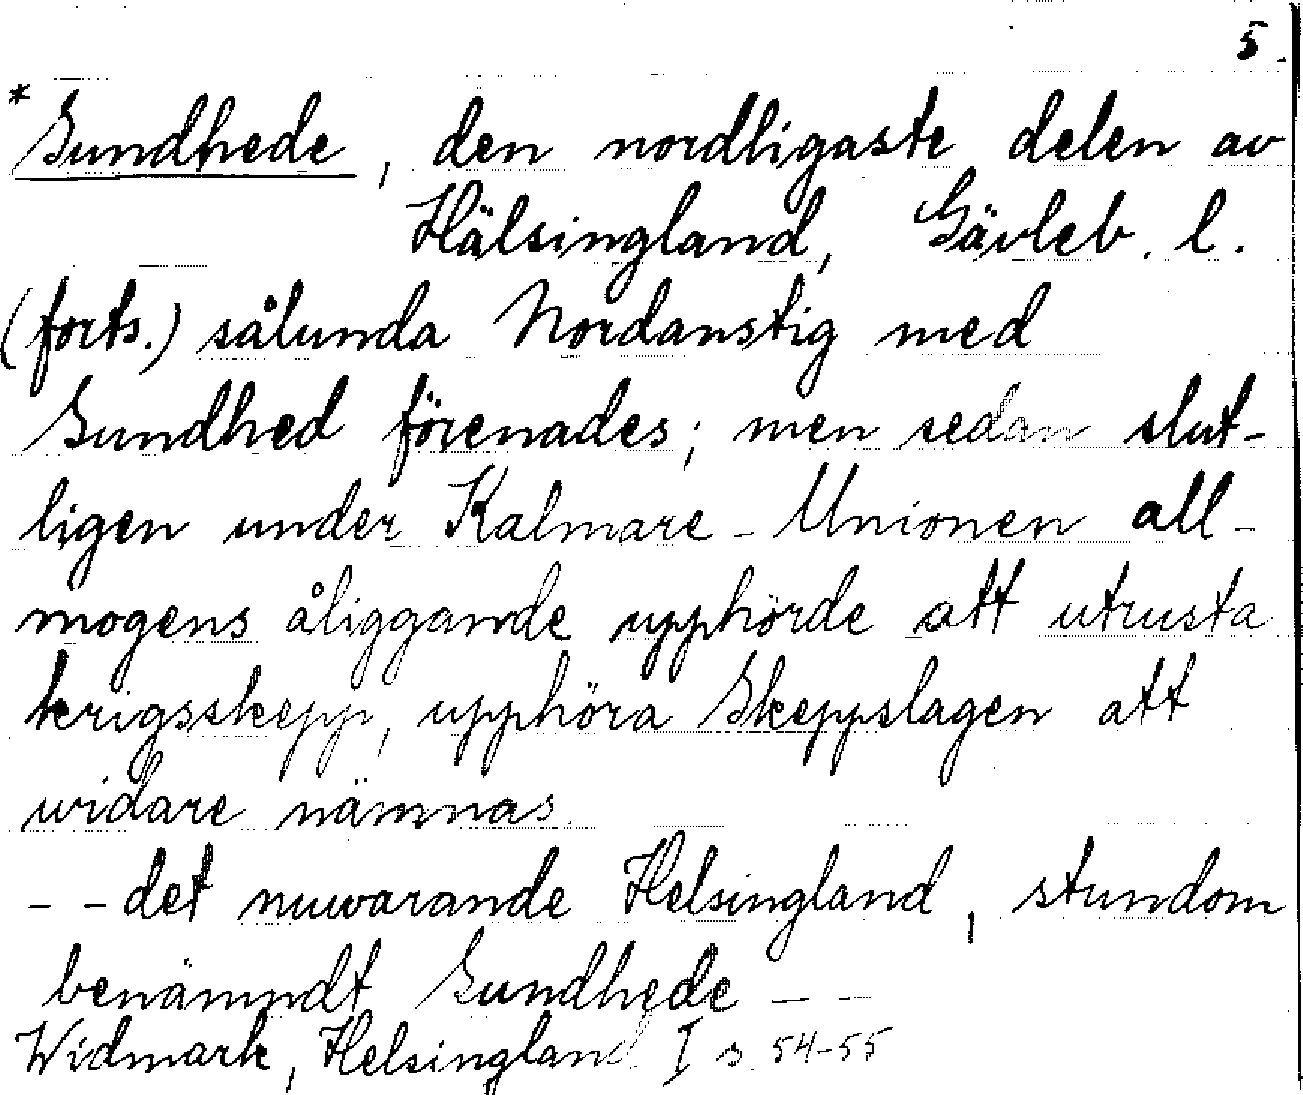 5.
*Sundhede, den nordligaste delen av
Hälsingland, Gävleb. l.
(forts.) sålunda Nordanstig med
Sundhed förenades; men sedan slut-
ligen under Kalmare-Unionen all-
mogens åliggande upphörde att utrusta
krigsskepp, upphöra Skeppslagen att
widare nämnas
- - det nuwarande Helsingland, stundom
benämndt Sundhede - -
Widmark, Helsingland I s. 54-55